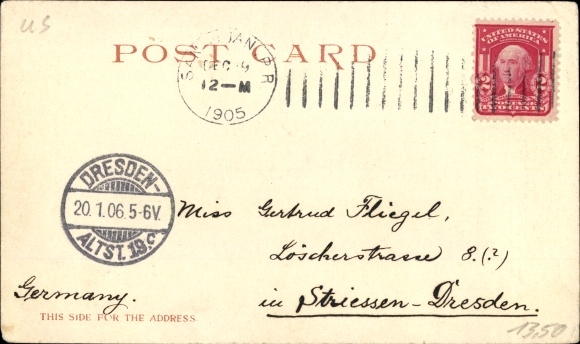 US
POST CARD
SAN JUAN P.R.
DEC 9
12-M
1905
UNITED STATES
OF AMERICA
2 2
POSTAGE
TWO CENTS
DRESDEN-
20.1.06.5-6V.
ALTST.19.c
Miss Gertrud Fliegel,
Löscherstrasse 8.(?)
Germany.
in Striessen-Dresden.
THIS SIDE FOR THE ADDRESS
13,50